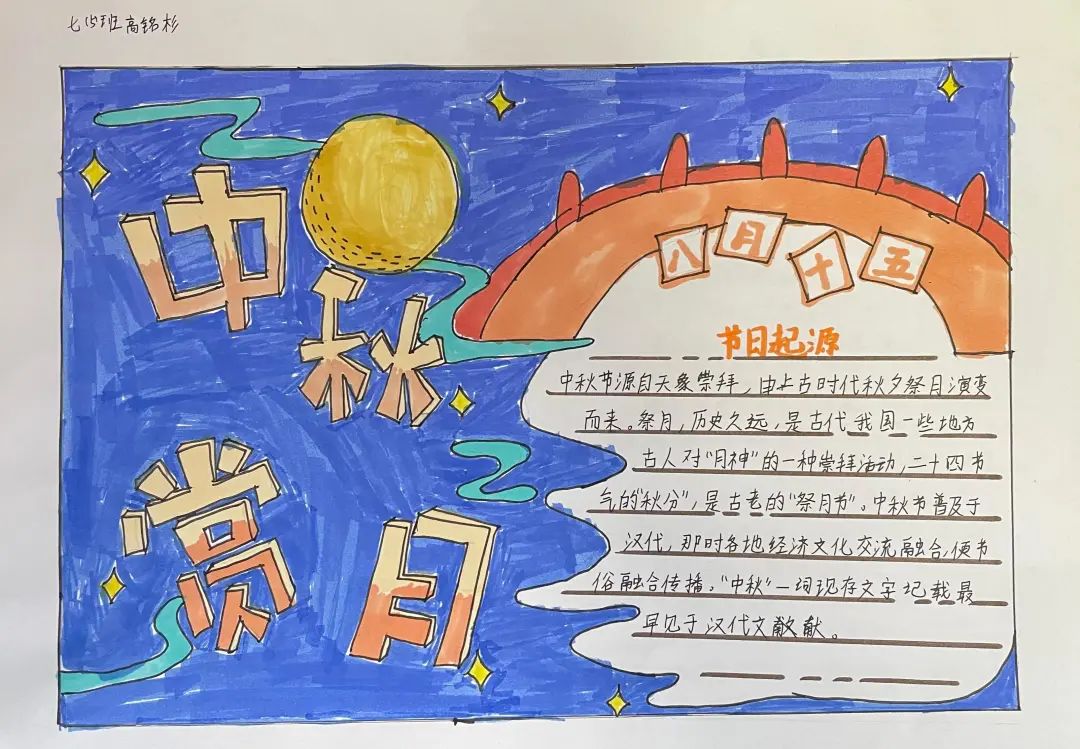 七15班高铭杉
中秋
赏月
八月十五
节日起源
中秋节源自天象崇拜，由上古时代秋夕祭月演变
而来。祭月，历史久远，是古代我国一些地方
古人对“月神”的一种崇拜活动，二十四节
气的“秋分”，是古老的“祭月节”。中秋节普及于
汉代，那时各地经济文化交流融合，使节
俗融合传播。“中秋”一词现存文字记载最
早见于汉代文献献。